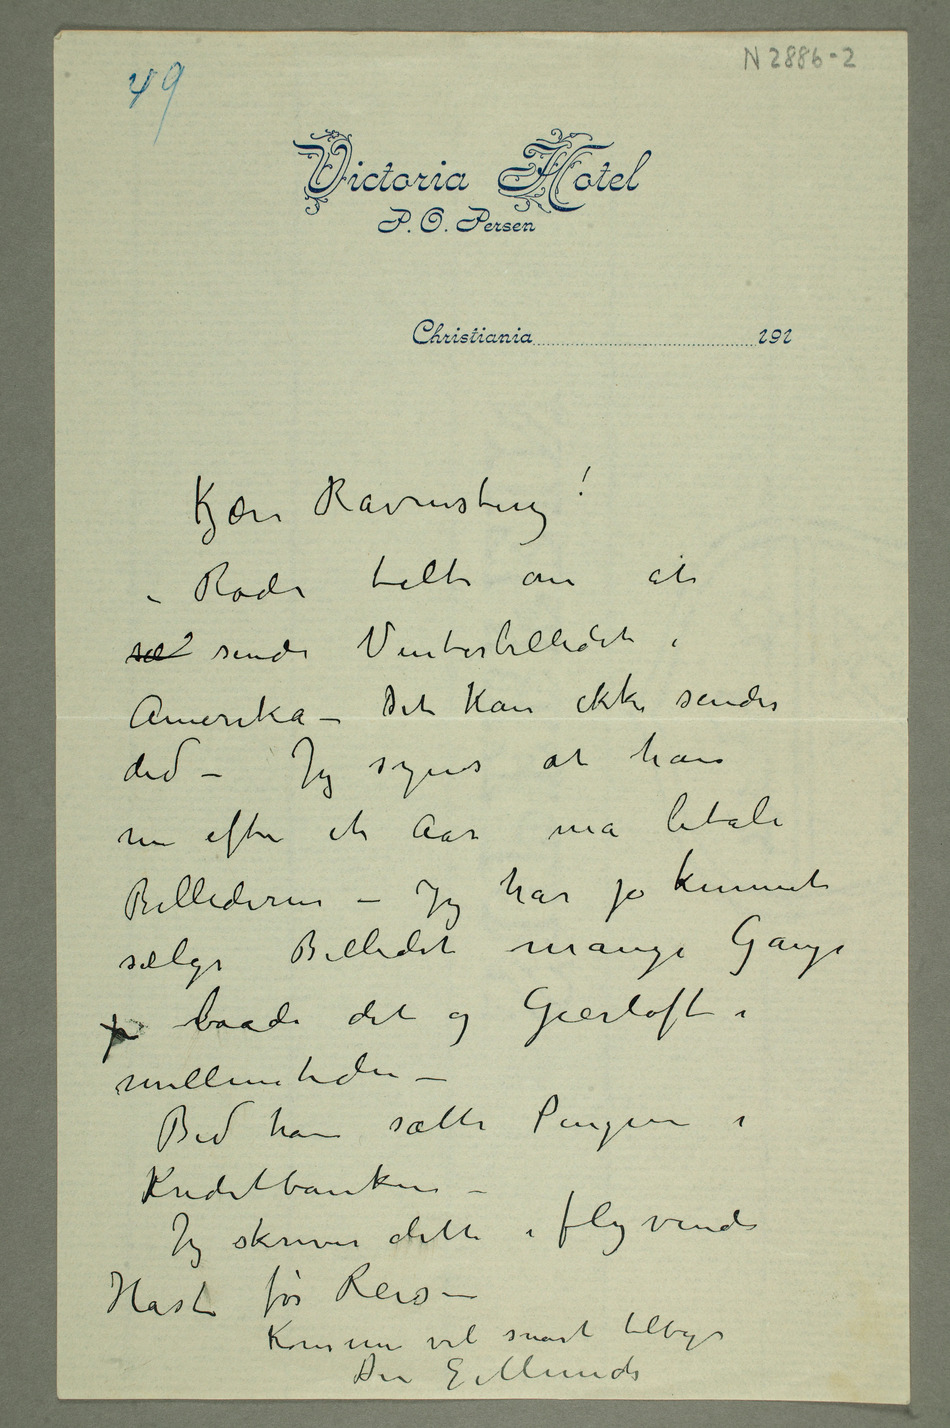 49
N 2886-2
Victoria Hotel
P. O. Persen
Christiania 191
Kjære Ravensberg!
– Rode talte om at
sæ sende Vinterbilledet i
Amerika – Det kan ikke sendes
did – Jeg synes at han
nu efter et Aar må betale
Billederne – Jeg har jo kunnet
sælge Billedet mange Gange
baade det og Gierløff i
mellemtiden –
Bed ham sætte Pengene i
Kreditbanken –
Jeg skriver dette i flyvende
Hast før Reis –
Kommer vel snart tilbage
Din E Munch